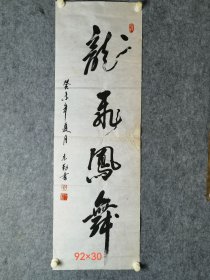 龍飛鳳舞
癸未年夏月
92×30